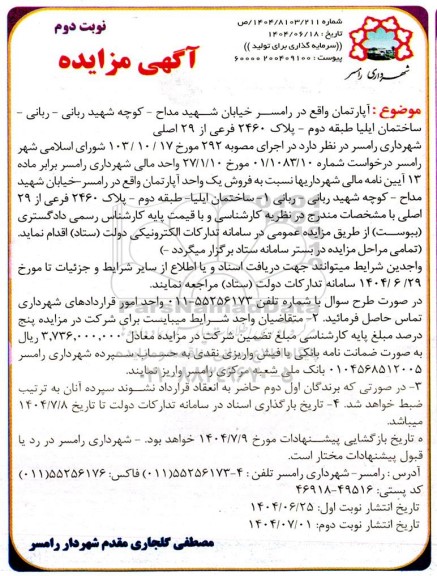 نوبت دوم
شماره ۱۴۰۴/۸۱۰۳/۲۱۱/ص
تاریخ : ۱۴۰۴/۰۶/۱۸
((سرمایه گذاری برای تولید))
پیوست : ۲۰۰۴۰۹۱۰۰ ۶۰۰۰۰
شهرداری رامسر
آگهی مزایده
موضوع : آپارتمان واقع در رامسر خیابان شهید مداح - کوچه شهید ربانی - ربانی -
ساختمان ایلیا طبقه دوم - پلاک ۲۴۶۰ فرعی از ۲۹ اصلی
شهرداری رامسر در نظر دارد در اجرای مصوبه ۲۹۲ مورخ ۱۷ / ۱۰ / ۱۰۳ شورای اسلامی شهر
رامسر درخواست شماره ۰۱/۱۰۸۳/۱۰ مورخ ۲۷/۱/۱۰ واحد مالی شهرداری رامسر برابر ماده
۱۳ آیین نامه مالی شهرداریها نسبت به فروش یک واحد آپارتمان واقع در رامسر-خیابان شهید
مداح - کوچه شهید ربانی - ربانی ۱- ساختمان ایلیا- طبقه دوم - پلاک ۲۴۶۰ فرعی از ۲۹
اصلی با مشخصات مندرج در نظریه کارشناسی و با قیمت پایه کارشناس رسمی دادگستری
(بپیوست) از طریق مزایده عمومی در سامانه تدارکات الکترونیکی دولت (ستاد) اقدام نماید.
(تمامی مراحل مزایده در بستر سامانه ستاد برگزار میگردد -)
واجدین شرایط میتوانند جهت دریافت اسناد و یا اطلاع از سایر شرایط و جزئیات تا مورخ
۱۴۰۴/ ۶/ ۲۹ سامانه تدارکات دولت (ستاد) مراجعه نمایند.
در صورت طرح سوال با شماره تلفن ۵۵۲۵۶۱۷۳-۰۱۱ واحد امور قراردادهای شهرداری
تماس حاصل فرمائید. ۲- متقاضیان واجد شرایط میبایست برای شرکت در مزایده پنج
درصد مبلغ پایه کارشناسی مبلغ تضمین شرکت در مزایده معادل ۳,۷۳۶,۰۰۰,۰۰۰ ریال
به صورت ضمانت نامه بانکی یا فیش واریزی نقدی به حساب سپرده شهرداری رامسر
۰۱۰۴۵۶۸۵۱۲۰۰۵ بانک ملی شعبه مرکزی رامسر واریز نمایند.
۳- در صورتی که برندگان اول دوم حاضر به انعقاد قرارداد نشوند سپرده آنان به ترتیب
ضبط خواهد شد. ۴- تاریخ بارگذاری اسناد در سامانه تدارکات دولت تا تاریخ ۱۴۰۴/۷/۸
میباشد.
۵ تاریخ بازگشایی پیشنهادات مورخ ۱۴۰۴/۷/۹ خواهد بود. - شهرداری رامسر در رد یا
قبول پیشنهادات مختار است.
آدرس : رامسر- شهرداری رامسر تلفن : ۴-۵۵۲۵۶۱۷۳(۰۱۱) فاکس: ۵۵۲۵۶۱۷۶(۰۱۱)
کد پستی: ۴۹۵۱۶-۴۶۹۱۸
تاریخ انتشار نوبت اول: ۱۴۰۴/۰۶/۲۵
تاریخ انتشار نوبت دوم: ۱۴۰۴/۰۷/۰۱
مصطفی گلجاری مقدم شهردار رامسر